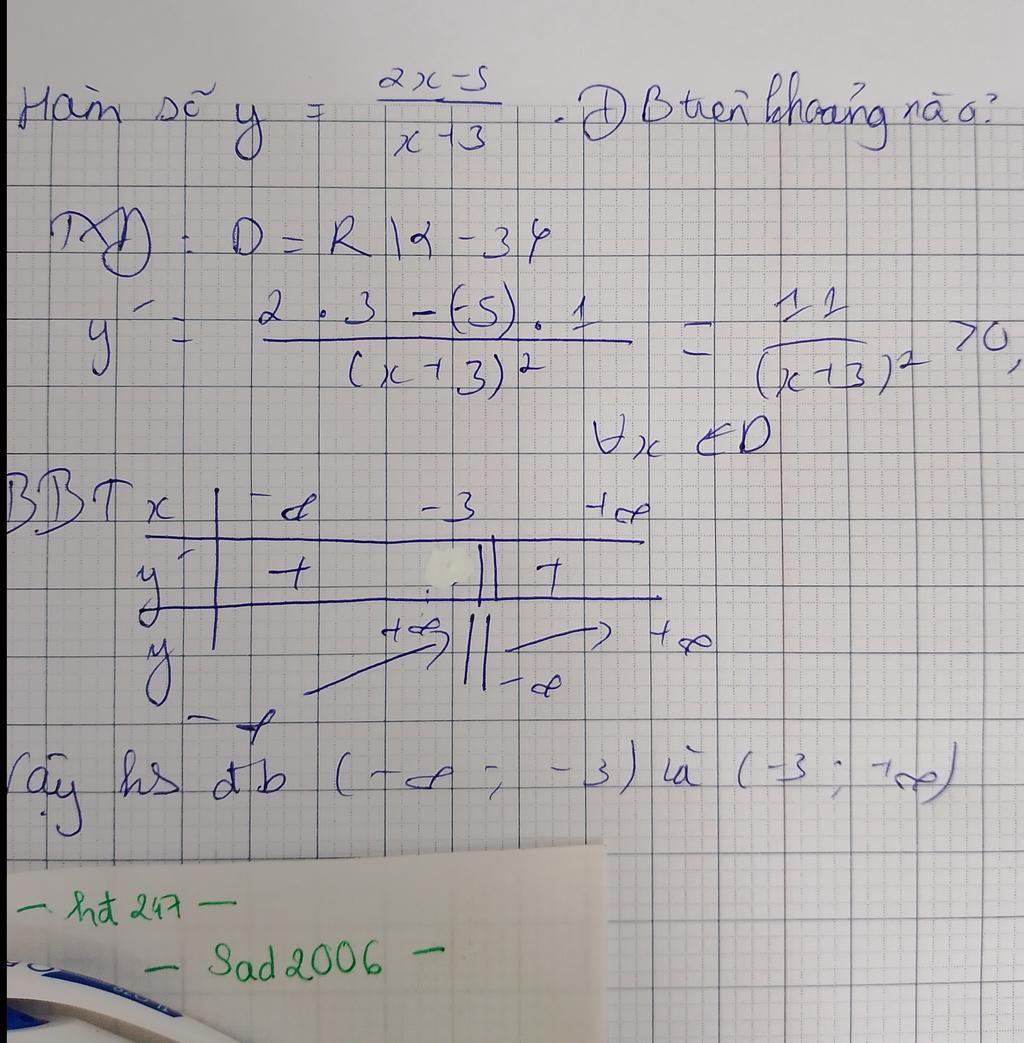 Hàm số y = (2x-5)/(x+3) . ĐB trên khoảng nào?
TXĐ : D = R \ {-3}
y' = (2 . 3 - (-5) . 1)/((x+3)^2) = 11/((x+3)^2) >0,
∀x ∈ D
BBT x | -∞ -3 +∞
y' | + || +
y | -∞ ↗ +∞ || -∞ ↗ +∞
Vậy hs đb (-∞ ; -3) là (-3 ; +∞)
- hđ 247 -
- Sad2006 -